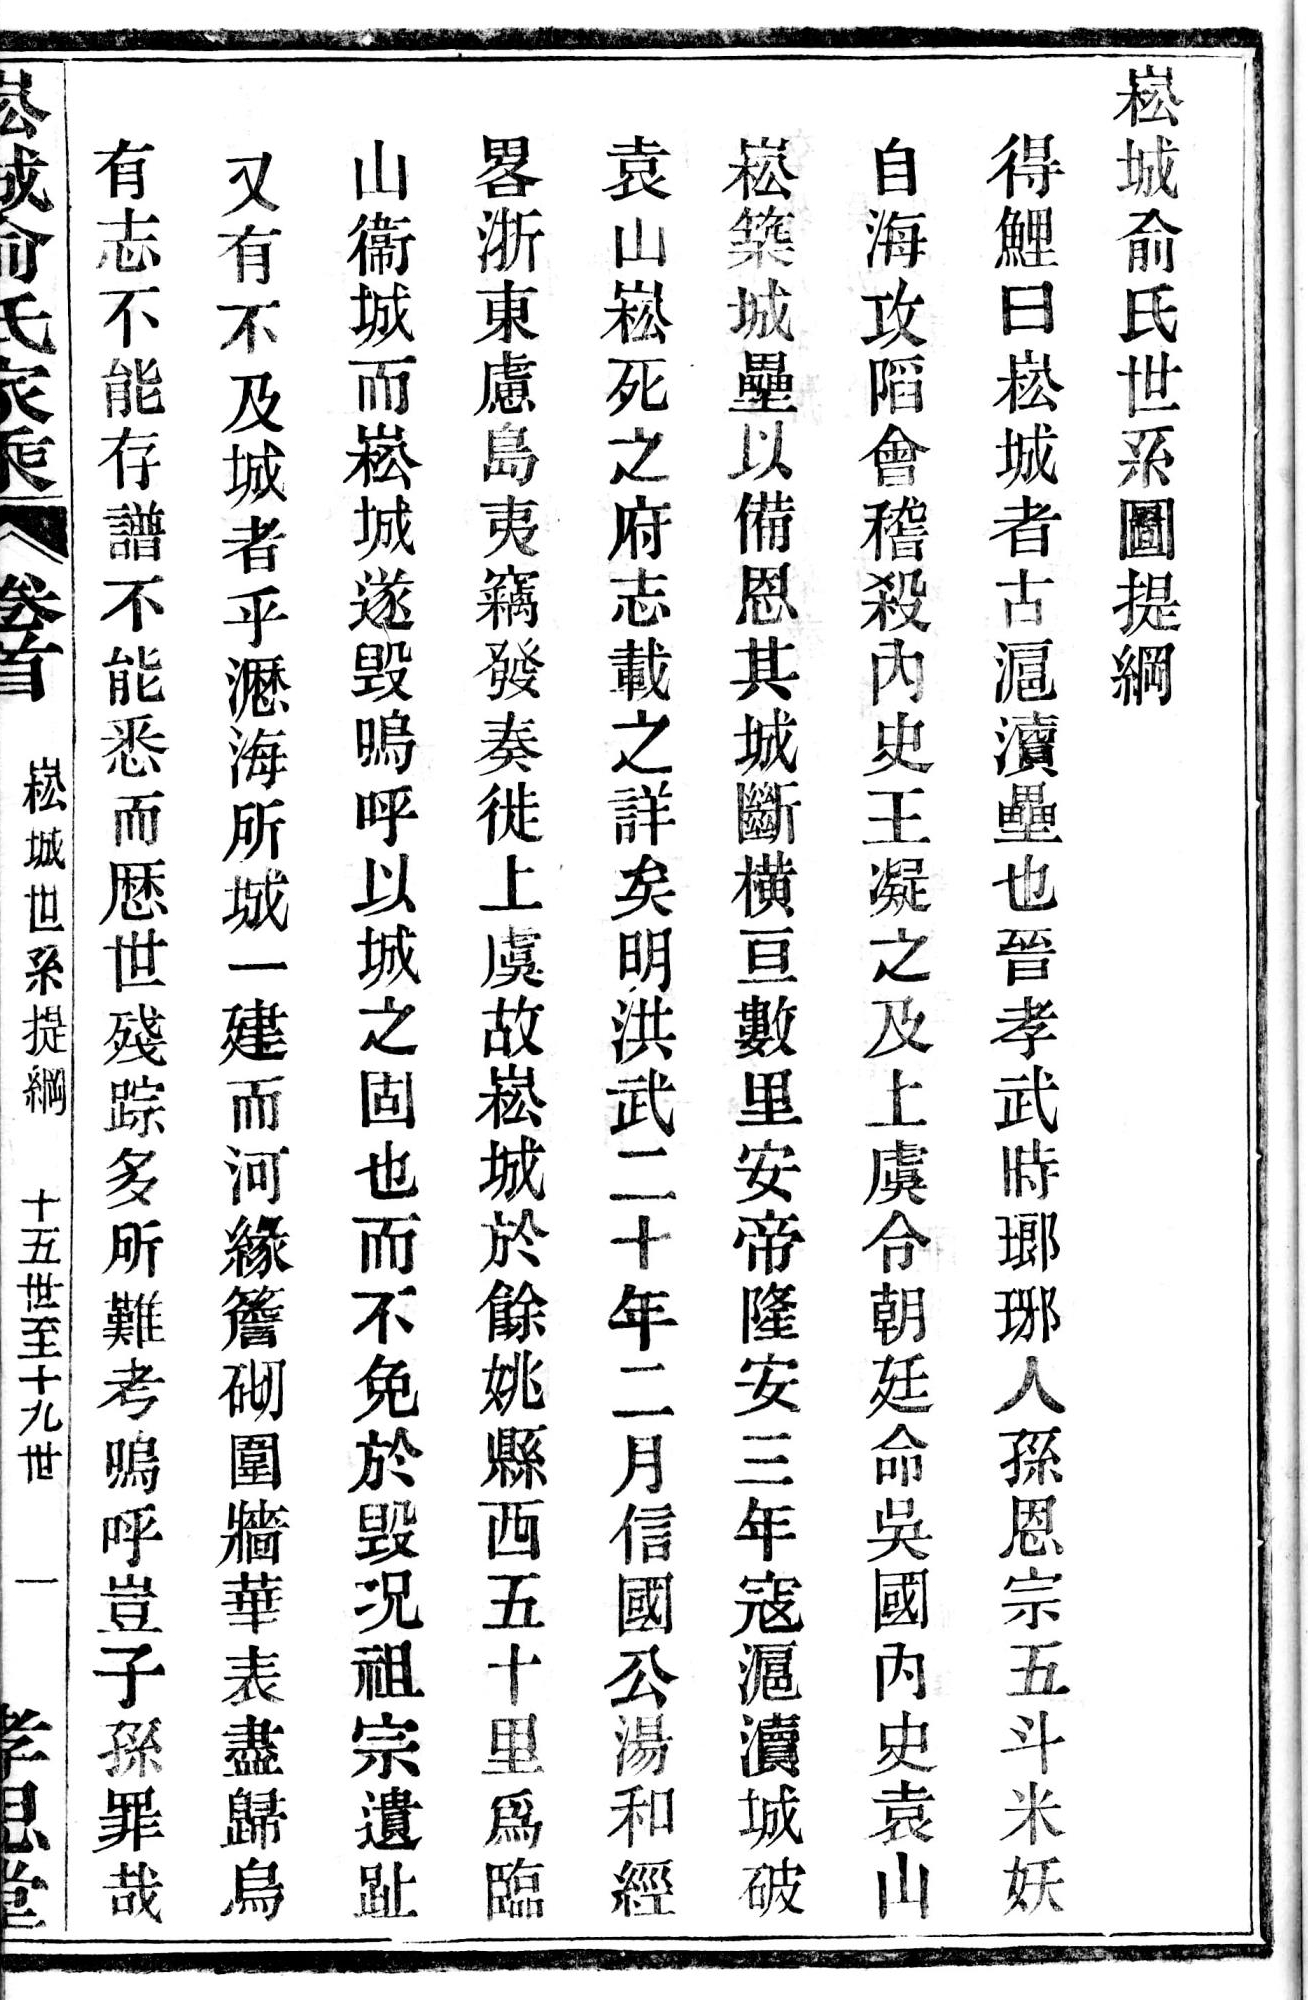 崧城俞氏世系圖提綱
得鯉曰崧城者古滬瀆壘也晉孝武時瑯琊人孫恩宗五斗米妖
自海攻陷會稽殺內史王凝之及上虞令朝廷命吳國內史袁山
崧築城壘以備恩其城斷橫亘數里安帝隆安三年寇滬瀆城破
袁山崧死之府志載之詳矣明洪武二十年二月信國公湯和經
畧浙東慮島夷竊發奏徙上虞故崧城於餘姚縣西五十里爲臨
山衞城而崧城遂毀嗚呼以城之固也而不免於毀况祖宗遺趾
又有不及城者乎瀝海所城一建而河緣簷砌圍牆華表盡歸烏
有志不能存譜不能悉而歷世殘踪多所難考嗚呼豈子孫罪哉
崧城俞氏家乘
卷首
崧城世系提綱
十五世至十九世
一
孝思堂